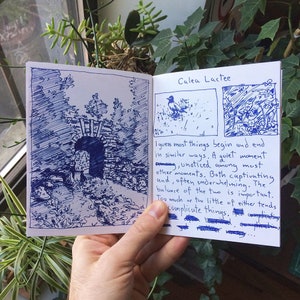 Calea Lactee
I guess most things begin and end
in similar ways. A quiet moment
unnoticed among most
other moments. Both captivating
and, often underwhelming. The
balance of the two is important.
Too much or too little of either tends
complicate things.